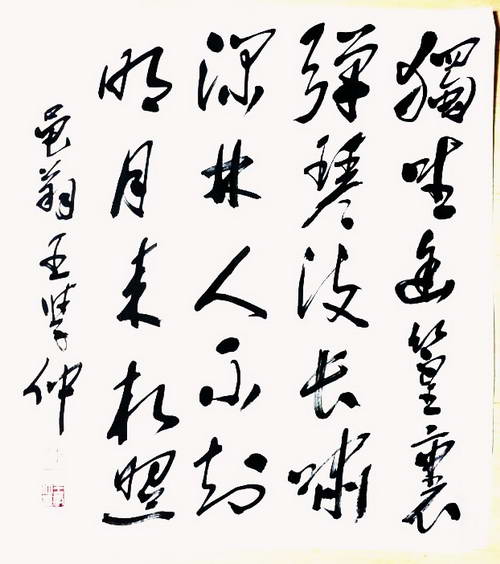 獨坐幽篁裏
彈琴復長嘯
深林人不知
明月来相照
黾翁王學仲